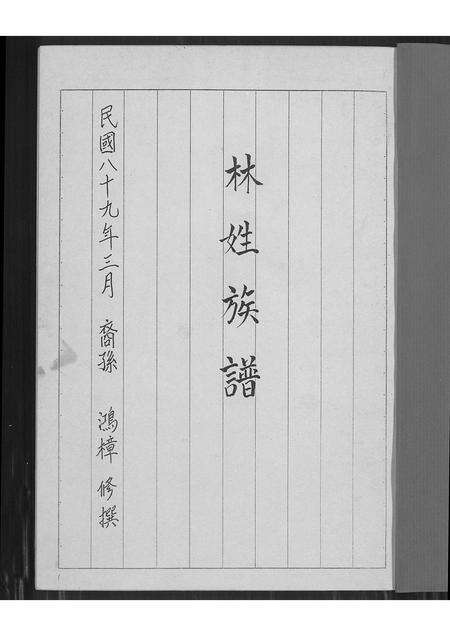 林姓族譜
民國八十九年三月 裔孫 鴻樟 修撰